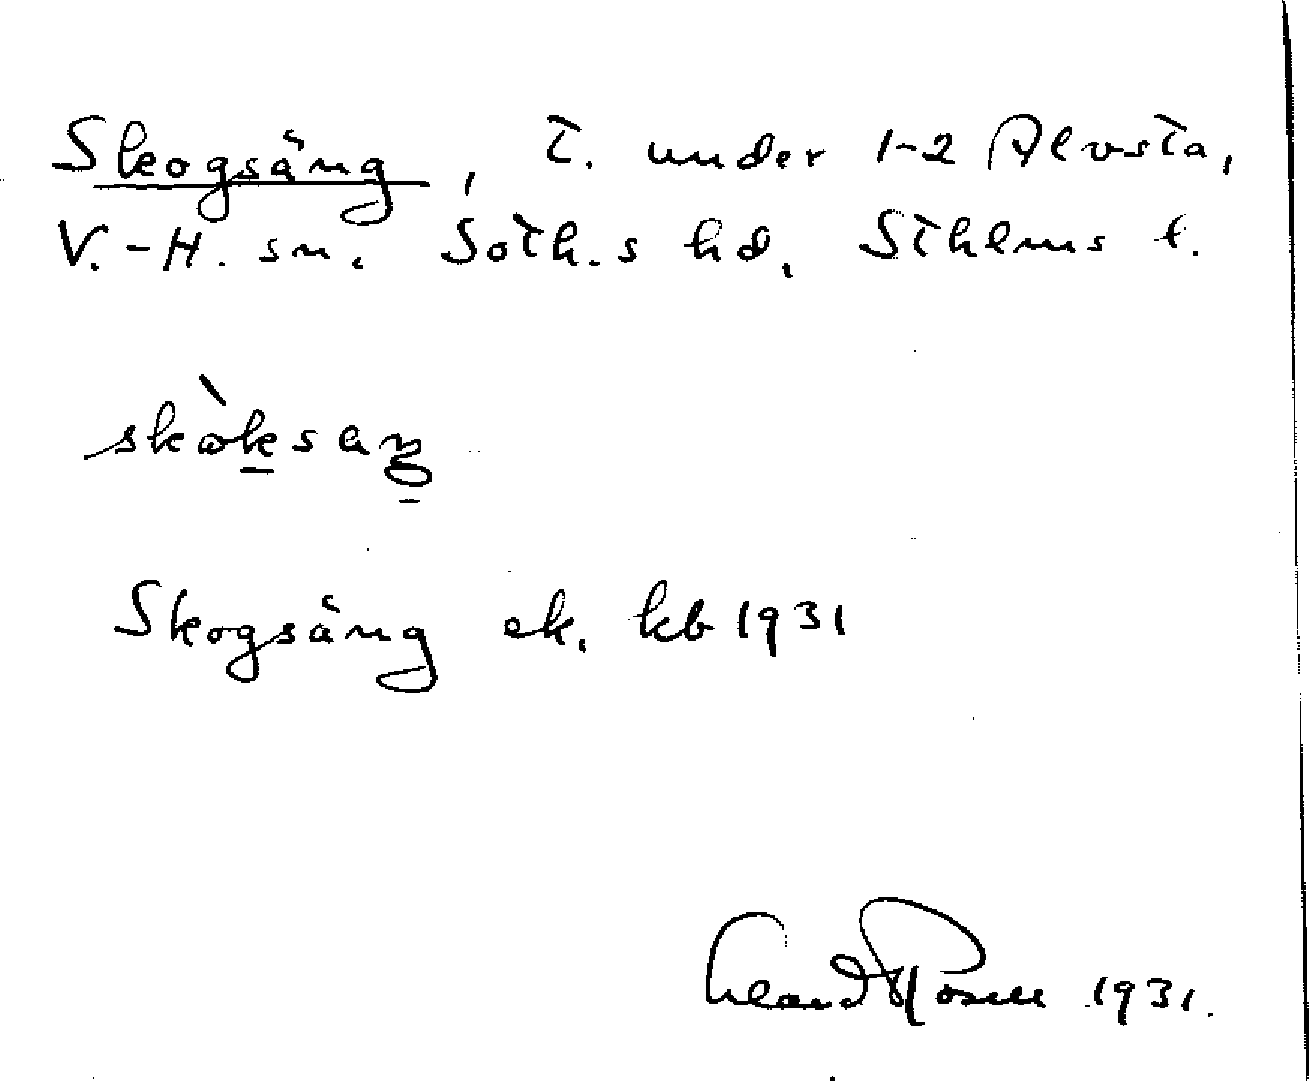 Skogsäng, t. under 1-2 Alvsta,
V.-H. sn. Soth.s hd, Sthlms l.
skòksaŋ
Skogsäng ek. kb 1931
Rosell 1931.